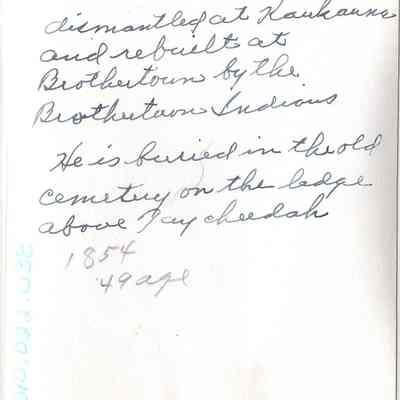 dismantled at Kaukauna
and rebuilt at
Brothertown by the
Brothertown Indians
He is buried in the old
cemetery on the ledge
above Taycheedah
1854
49 age